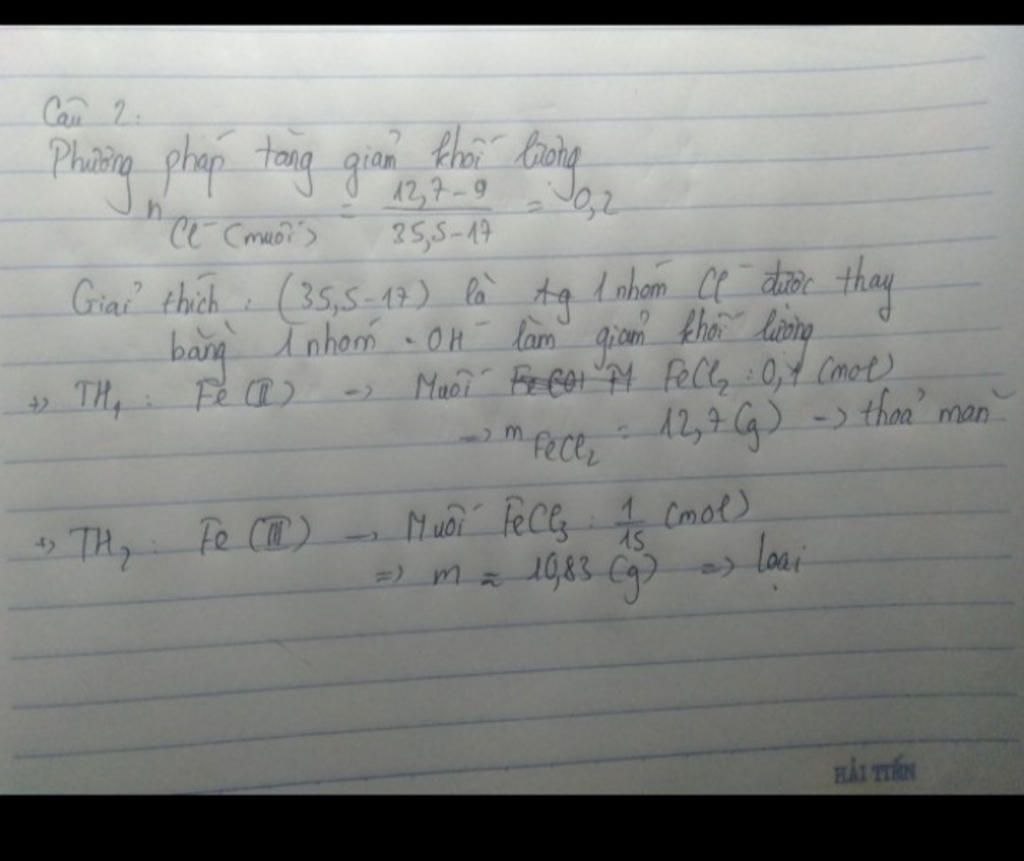 Câu 2:
Phương pháp tăng giảm khối lượng
n Cl⁻ (muối) = 12,7-9 / 35,5-17 = 0,2
Giải thích : (35,5-17) là 1 nhóm Cl⁻ được thay
bằng 1 nhóm OH⁻ làm giảm khối lượng
+> TH₁ : Fe (II) -> Muối FeCl₂ : 0,1 (mol)
=> m FeCl₂ = 12,7 (g) -> thoả mãn
+> TH₂ : Fe (III) -> Muối FeCl₃ : 1/15 (mol)
=> m ≈ 10,83 (g) => loại
HẢI TIẾN